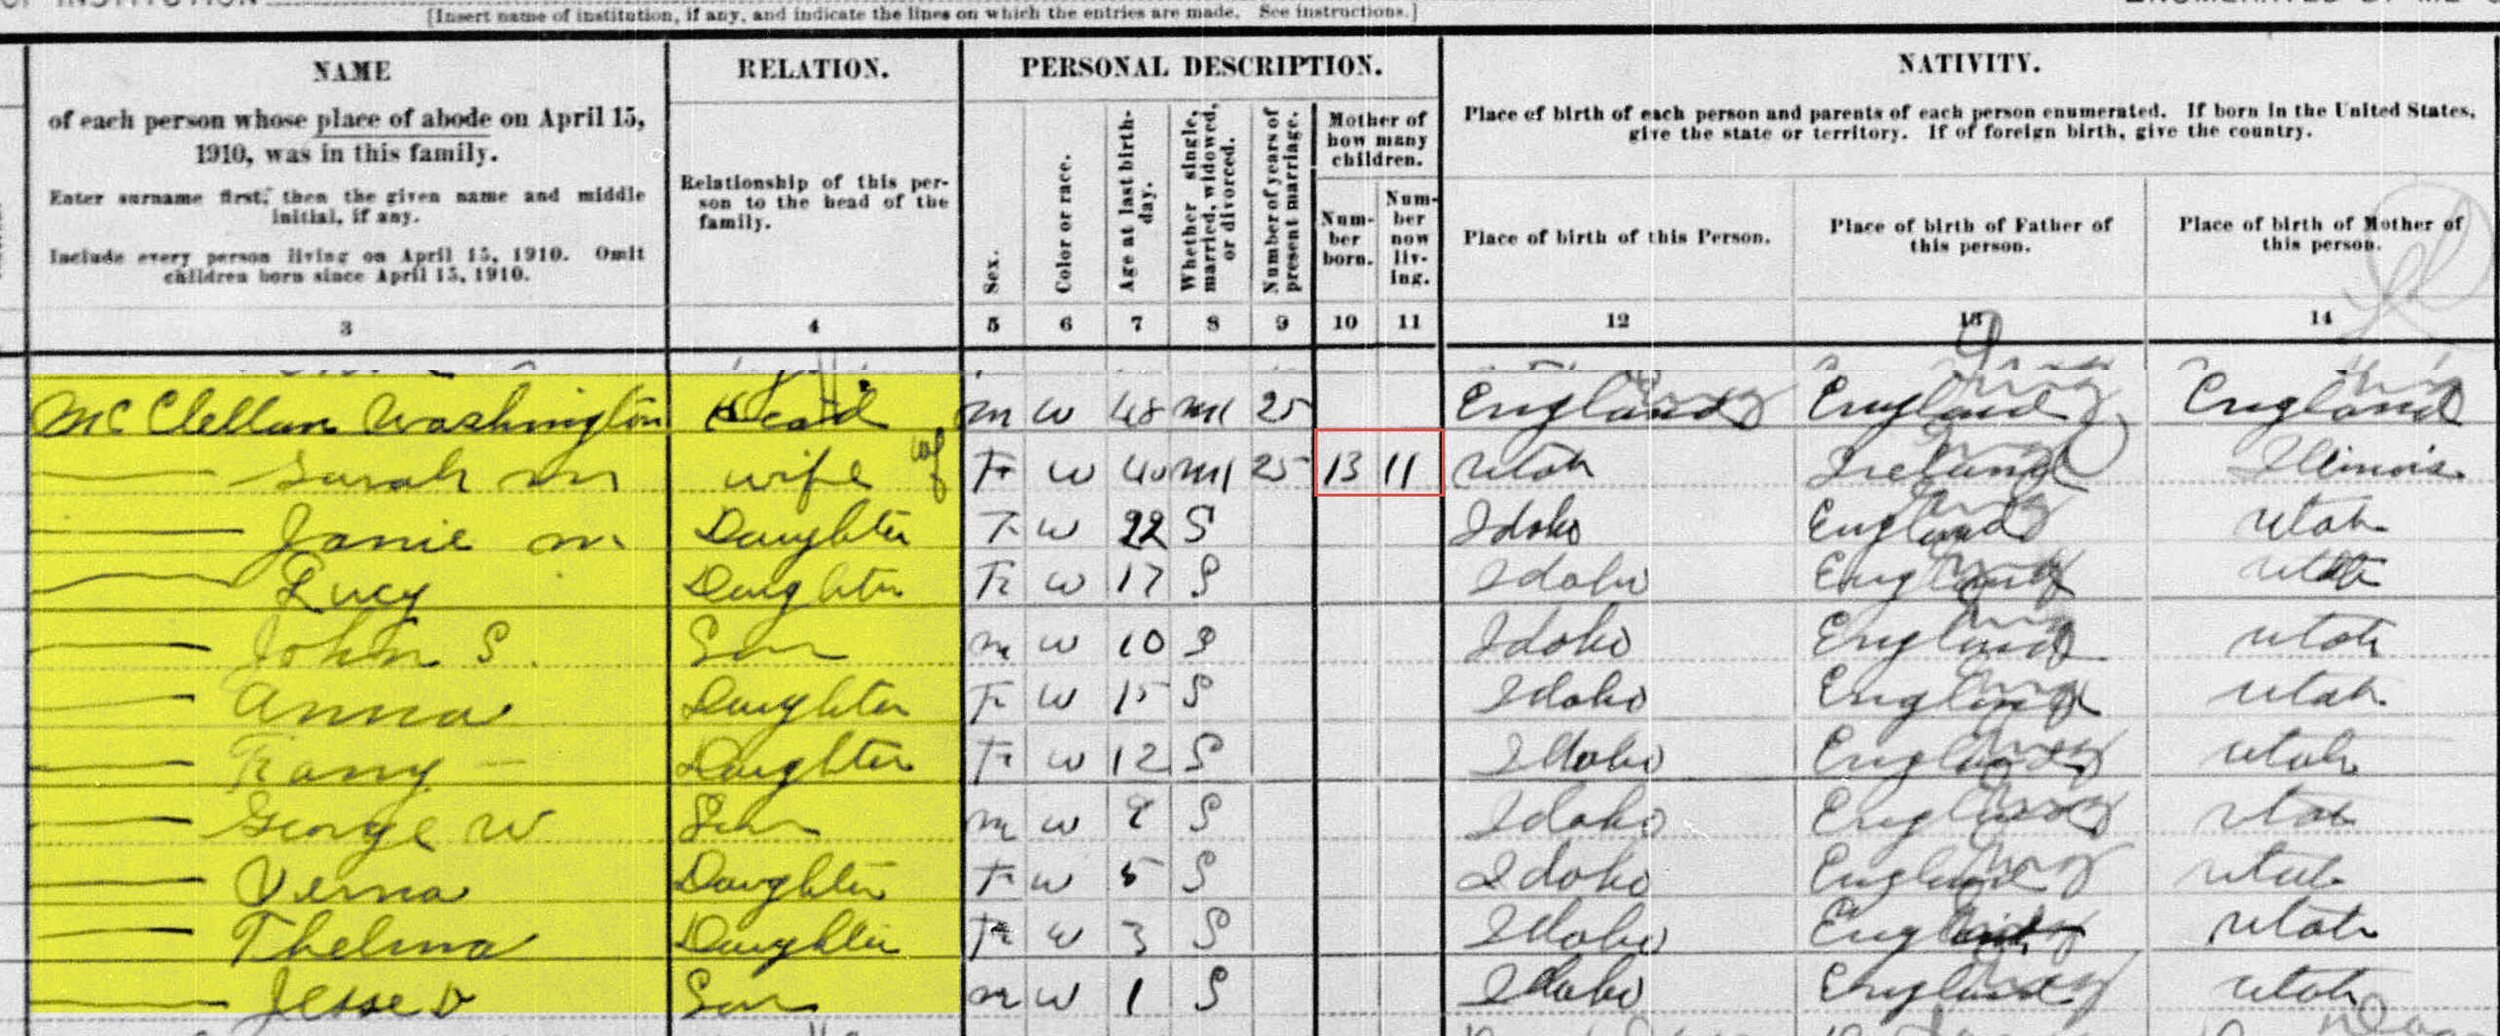 OF INSTITUTION
[Insert name of institution, if any, and indicate the lines on which the entries are made. See instructions.]
NAME
of each person whose place of abode on April 15,
1910, was in this family.
Enter surname first, then the given name and middle
initial, if any.
Include every person living on April 15, 1910. Omit
children born since April 15, 1910.
RELATION.
Relationship of this per-
son to the head of the
family.
PERSONAL DESCRIPTION.
Sex.
Color or race.
Age at last birth-
day.
Whether single,
married, widowed,
or divorced.
Number of years of
present marriage.
Mother of
how many
children.
Num-
ber
born.
Num-
ber
now
liv-
ing.
NATIVITY.
Place of birth of each person and parents of each person enumerated. If born in the United States,
give the state or territory. If of foreign birth, give the country.
Place of birth of this Person.
Place of birth of Father of
this person.
Place of birth of Mother of
this person.
3 4 5 6 7 8 9 10 11 12 13 14
McClellan Washington Head m w 48 M1 25 England England England
Sarah m wife F w 40 M1 25 13 11 Utah Ireland Illinois
Janie m Daughter F w 22 S Idaho England Utah
Lucy Daughter F w 17 S Idaho England Utah
John S. Son m w 10 S Idaho England Utah
Anna Daughter F w 15 S Idaho England Utah
Fanny Daughter F w 12 S Idaho England Utah
George W Son m w S Idaho England Utah
Verna Daughter F w 5 S Idaho England Utah
Thelma Daughter F w 3 S Idaho England Utah
Jesse D Son m w 1 S Idaho England Utah